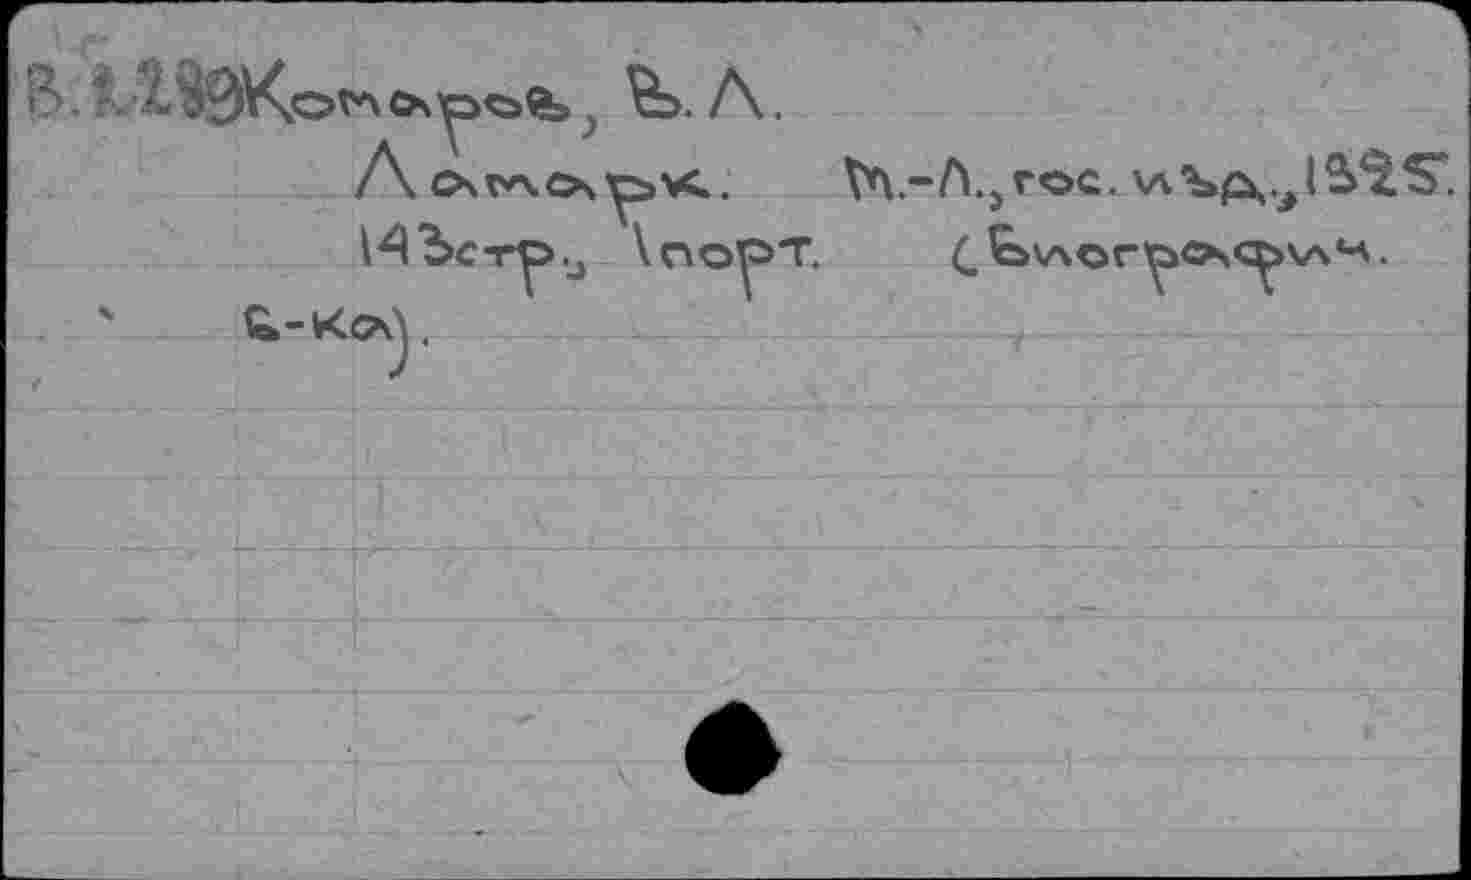 Комаров, В.Л.
Ламарк. М.-Л., гос. изд., 1925.
143 стр., 1 порт. (Биографич.
б-ка).